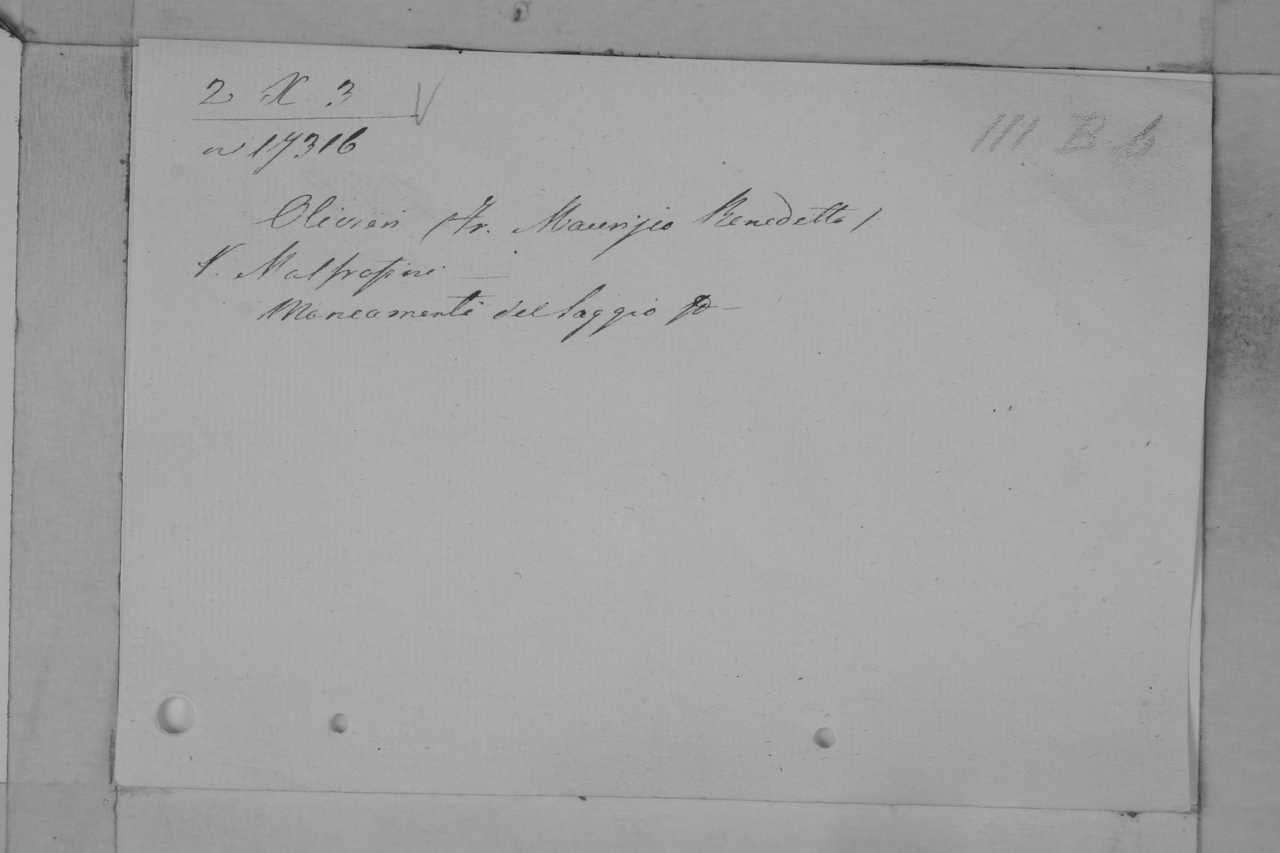 2 X 3 V
n 17316
III B b
Olivieri (Fr. Maurizio Benedetto)
V. Malfrasini
Mancamenti del Saggio